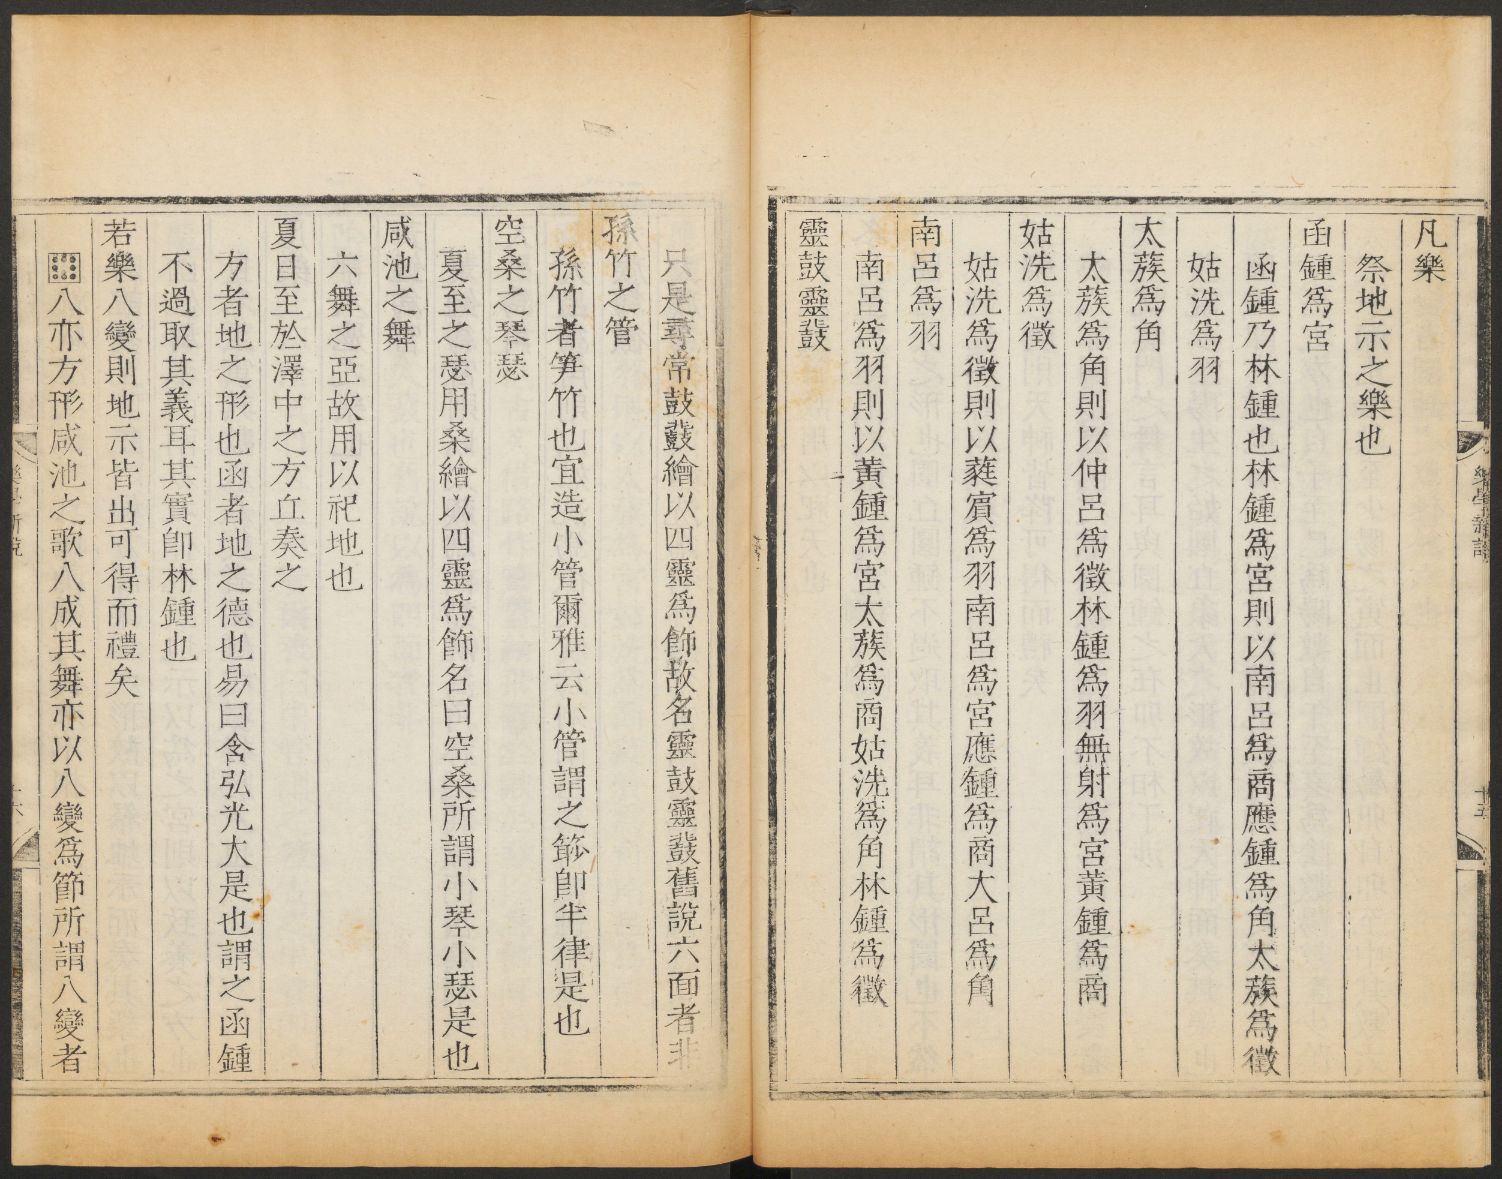 凡樂
祭地示之樂也
函鍾爲宮
函鍾乃林鍾也林鍾爲宮則以南呂爲商應鍾爲角太蔟爲徵
姑洗爲羽
太蔟爲角
太蔟爲角則以仲呂爲徵林鍾爲羽無射爲宮黃鍾爲商
姑洗爲徵
姑洗爲徵則以蕤賓爲羽南呂爲宮應鍾爲商大呂爲角
南呂爲羽
南呂爲羽則以黃鍾爲宮太蔟爲商姑洗爲角林鍾爲徵
靈鼓靈鼗
只是尋常鼓鼗繪以四靈爲飾故名靈鼓靈鼗舊說六面者非
孫竹之管
孫竹者笋竹也宜造小管爾雅云小管謂之篎卽半律是也
空桑之琴瑟
夏至之瑟用桑繪以四靈爲飾名曰空桑所謂小琴小瑟是也
咸池之舞
六舞之亞故用以祀地也
夏日至於澤中之方丘奏之
方者地之形也函者地之德也易曰含弘光大是也謂之函鍾
不過取其義耳其實卽林鍾也
若樂八變則地示皆出可得而禮矣
八亦方形咸池之歌八成其舞亦以八變爲節所謂八變者
樂學新說
十五